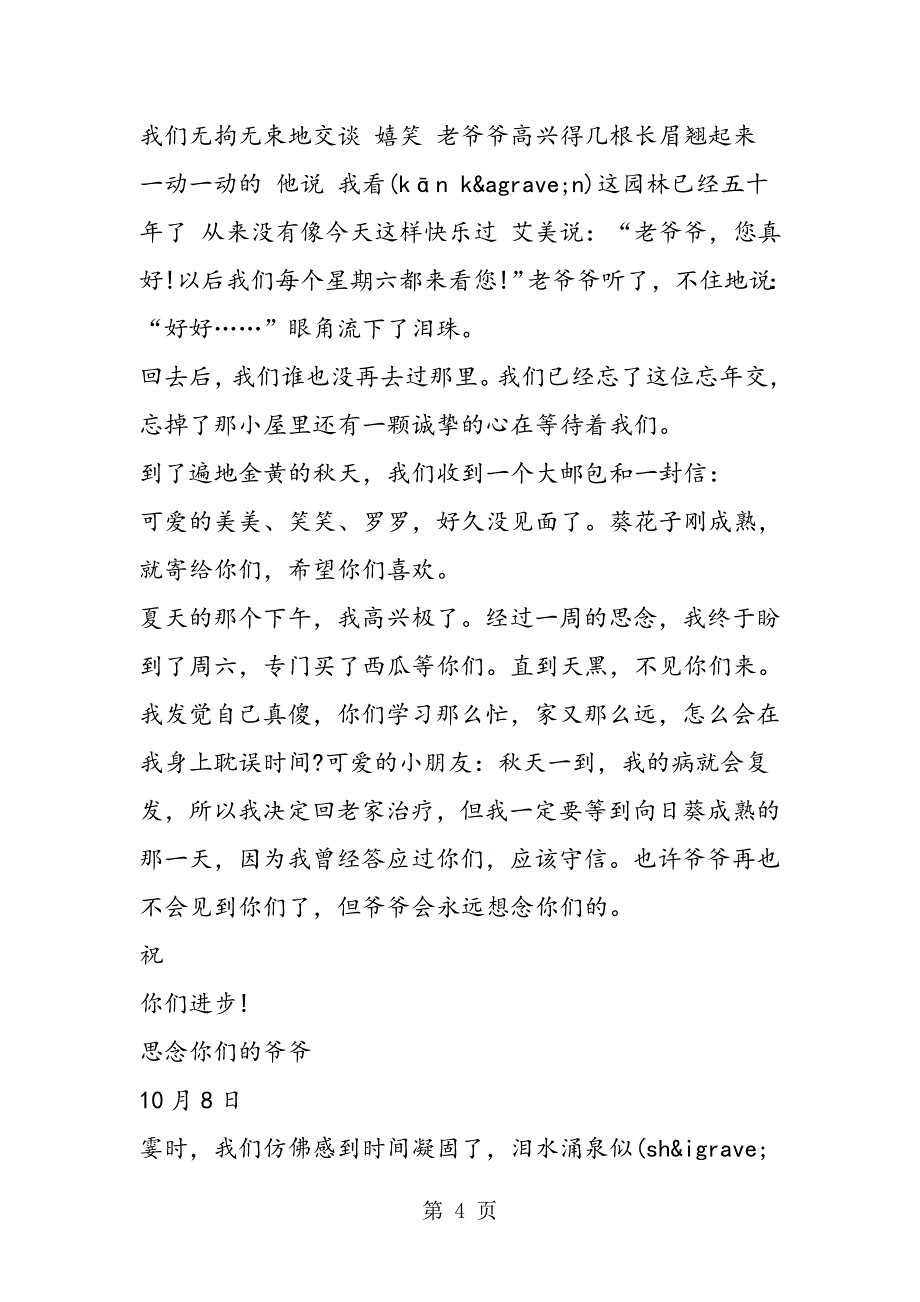 我们无拘无束地交谈 嬉笑 老爷爷高兴得几根长眉翘起来
一动一动的 他说 我看(kān k&agrave;n)这园林已经五十
年了 从来没有像今天这样快乐过 艾美说：“老爷爷，您真
好!以后我们每个星期六都来看您!”老爷爷听了，不住地说：
“好好……”眼角流下了泪珠。
回去后，我们谁也没再去过那里。我们已经忘了这位忘年交，
忘掉了那小屋里还有一颗诚挚的心在等待着我们。
到了遍地金黄的秋天，我们收到一个大邮包和一封信：
可爱的美美、笑笑、罗罗，好久没见面了。葵花子刚成熟，
就寄给你们，希望你们喜欢。
夏天的那个下午，我高兴极了。经过一周的思念，我终于盼
到了周六，专门买了西瓜等你们。直到天黑，不见你们来。
我发觉自己真傻，你们学习那么忙，家又那么远，怎么会在
我身上耽误时间?可爱的小朋友：秋天一到，我的病就会复
发，所以我决定回老家治疗，但我一定要等到向日葵成熟的
那一天，因为我曾经答应过你们，应该守信。也许爷爷再也
不会见到你们了，但爷爷会永远想念你们的。
祝
你们进步!
思念你们的爷爷
10月8日
霎时，我们仿佛感到时间凝固了，泪水涌泉似(sh&igrave;
第 4 页